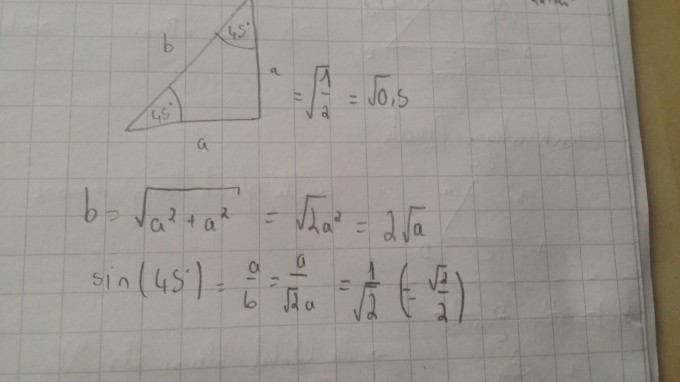 b 45°
a
= √1/2 = √0,5
45°
a
b = √a² + a² = √2a² = 2√a
sin(45°) = a/b = a/√2a = 1/√2 (= √2/2)